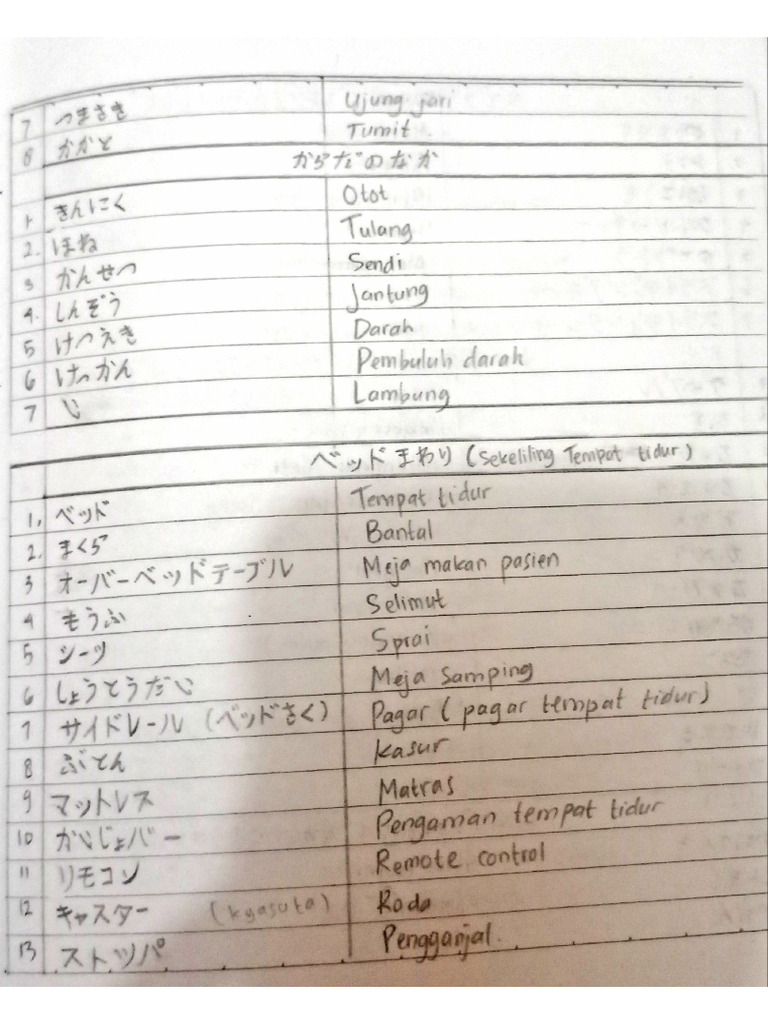 7 つまさき Ujung jari
8 かかと Tumit
からだのなか
1 きんにく Otot
2. ほね Tulang
3 かんせつ Sendi
4. しんぞう Jantung
5 けつえき Darah
6 けっかん Pembuluh darah
7 い Lambung
ベッドまわり (Sekeliling Tempat tidur)
1. ベッド Tempat tidur
2. まくら Bantal
3 オーバーベッドテーブル Meja makan pasien
4 もうふ Selimut
5 シーツ Sprai
6 しょうとうだい Meja Samping
7 サイドレール (ベッドさく) Pagar (pagar tempat tidur)
8 ぶとん Kasur
9 マットレス Matras
10 かいじょバー Pengaman tempat tidur
11 リモコン Remote control
12 キャスター (kyasuta) Roda
13 ストッパ Pengganjal.